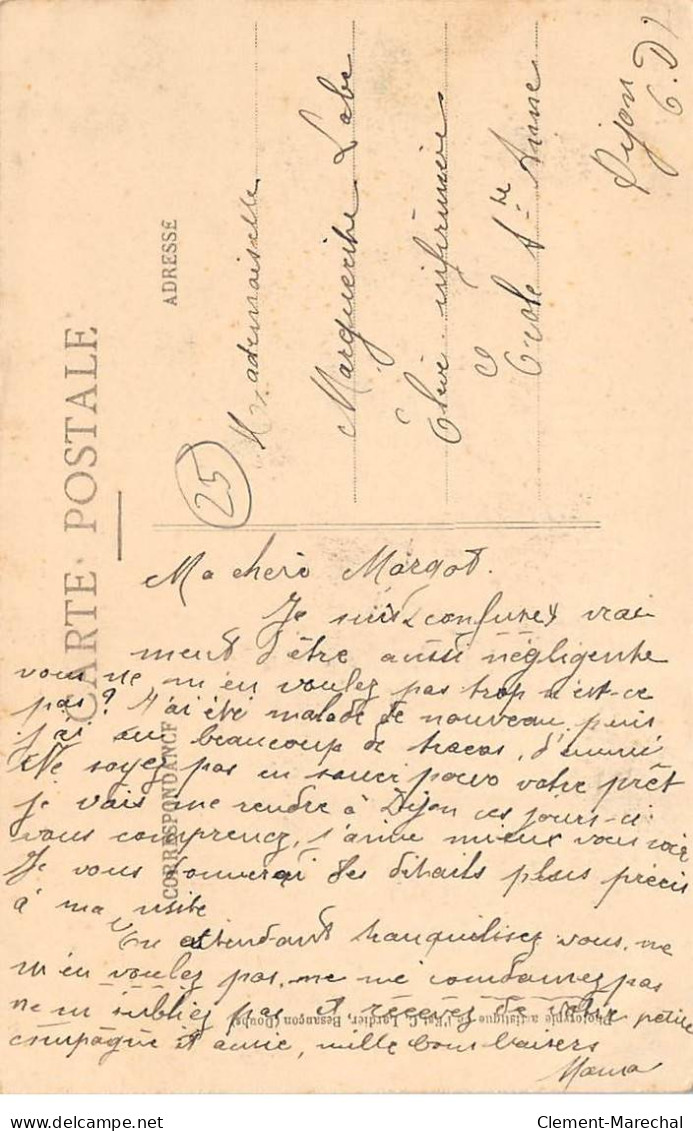 CARTE POSTALE
CORRESPONDANCE
ADRESSE
Mademoiselle
Marguerite Labe
Élève infirmière
École Ste Anne
Dijon
C. D'
25
Ma chère Margot.
Je suis confuse vrai
ment d'être aussi négligente
vous ne m'en voulez pas trop n'est-ce
pas? J'ai été malade de nouveau, puis
j'ai eu beaucoup de tracas, d'ennui
Ne soyez pas en souci pour votre prêt
je vais me rendre à Dijon ces jours-ci
vous comprenez, j'aime mieux vous voir
Je vous donnerai des détails plus précis
à ma visite
En attendant tranquilisez vous, ne
m'en voulez pas, ne me condamnez pas
ne m'oubliez pas et recevez de votre petite
compagne et amie, mille bons baisers
Photographie artistique de l'Est C. Lardier, Besançon (Doubs)
Clement-Marechal